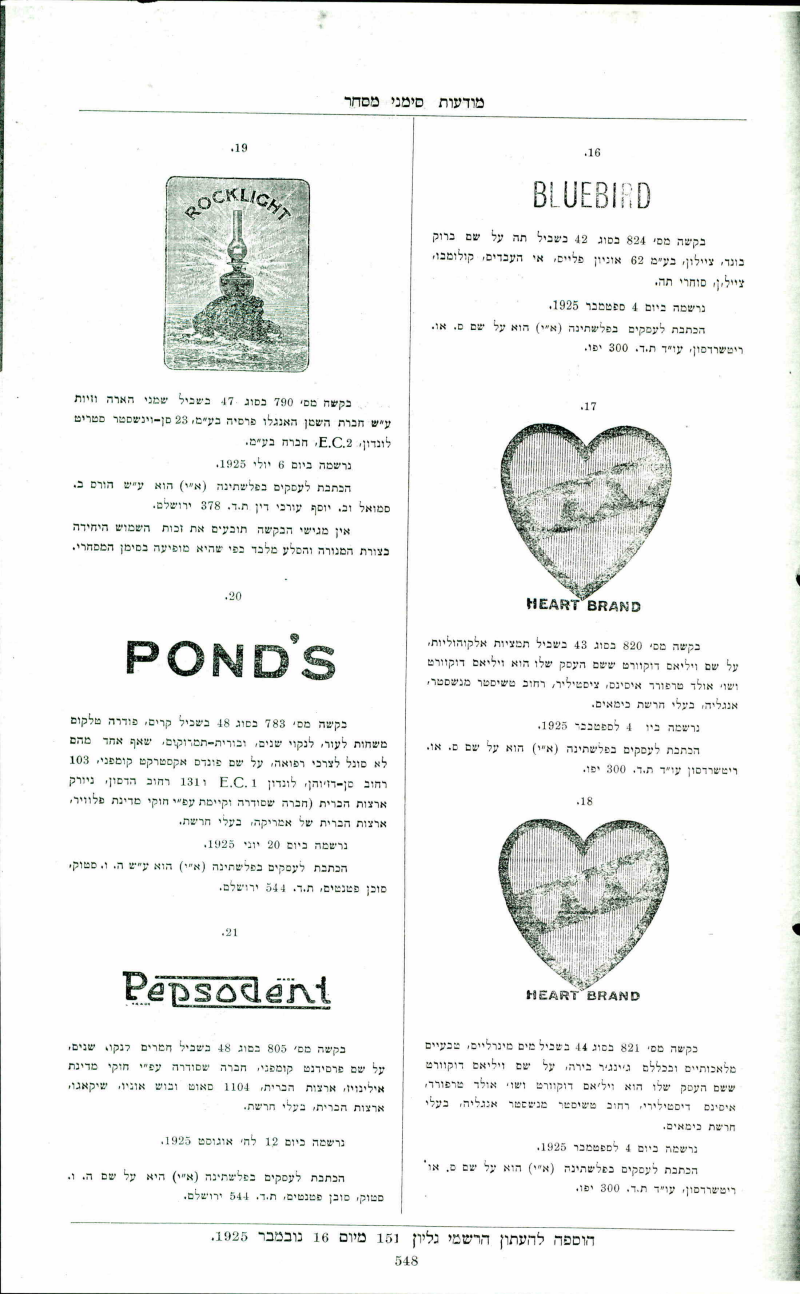 מודעות סימני מסחר
16.
BLUEBIRD
בקשה מס׳ 824 בסוג 42 בשביל תה על שם ברוק
בונד, ציילון, בע״מ 62 אוניון פלייס, אי העבדים, קולומבו,
ציילון, סוחרי תה.
נרשמה ביום 4 ספטמבר 1925.
הכתבת לעסקים בפלשתינה (א״י) הוא על שם ס. או.
ריטשרדסון, עו״ד ת.ד. 300 יפו.
17.
HEART BRAND
בקשה מס׳ 820 בסוג 43 בשביל תמציות אלקוהוליות,
על שם ויליאם דוקוורט ששם העסק שלו הוא ויליאם דוקוורט
ושו׳ אולד טרפורד איסינס, ציסטיליר, רחוב טשיסטר מנשסטר,
אנגליה, בעלי חרשת כימאים.
נרשמה ביו 4 לספטבבר 1925.
הכתבת לעסקים בפלשתינה (א״י) הוא על שם ס. או.
ריטשרדסון עו״ד ת.ד. 300 יפו.
18.
HEART BRAND
בקשה מס׳ 821 בסוג 44 בשביל מים מינרליים, טבעיים
מלאכותיים ובכללם ג׳ינג׳ר בירה, על שם ויליאם דוקוורט
ששם העסק שלו הוא ויליאם דוקוורט ושו׳ אולד טרפורד,
איסינס דיסטילירי, רחוב טשיסטר מנשסטר אנגליה, בעלי
חרשת כימאים.
נרשמה ביום 4 לספטמבר 1925.
הכתבת לעסקים בפלשתינה (א״י) הוא על שם ס. או.
ריטשרדסון, עו״ד ת.ד. 300 יפו.
19.
ROCKLIGHT
בקשה מס׳ 790 בסוג 47 בשביל שמני הארה וזיות
ע״ש חברת השמן האנגלו פרסיה בע״מ, 23 סן-וינשסטר סטריט
לונדון, E.C.2, חברה בע״מ.
נרשמה ביום 6 יולי 1925.
הכתבת לעסקים בפלשתינה (א״י) הוא ע״ש הורס ב.
סמואל וב. יוסף עורכי דין ת.ד. 378 ירושלם.
אין מגישי הבקשה תובעים את זכות השמוש היחידה
בצורת המנורה והסלע מלבד כפי שהיא מופיעה בסימן המסחרי.
20.
POND'S
בקשה מס׳ 783 בסוג 48 בשביל קרים, פודרה טלקום
משחות לעור, לנקוי שנים, ובורית-תמרוקים, שאף אחד מהם
לא סוגל לצרכי רפואה, על שם פונדס אקסטרקט קומפני, 103
רחוב סן-דז׳והן, לונדון E.C.1 ו131 רחוב הדסון, ניורק
ארצות הברית (חברה שסודרה וקיימת עפ״י חוקי מדינת פלוויר,
ארצות הברית של אמריקה, בעלי חרשת.
נרשמה ביום 20 יוני 1925.
הכתבת לעסקים בפלשתינה (א״י) הוא ע״ש ה. ו. סטוק,
סוכן פטנטים, ת.ד. 544 ירושלם.
21.
Pepsodent
בקשה מס׳ 805 בסוג 48 בשביל חמרים לנקוי שנים,
על שם פרסידנט קומפני, חברה שסודרה עפ״י חוקי מדינת
אילינויז, ארצות הברית, 1104 סאוט ובוש אוניו, שיקאגו,
ארצות הברית, בעלי חרשת.
נרשמה ביום 12 לח׳ אוגוסט 1925.
הכתבת לעסקים בפלשתינה (א״י) היא על שם ה. ו.
סטוק, סוכן פטנטים, ת.ד. 544 ירושלם.
הוספה להעתון הרשמי גליון 151 מיום 16 נובמבר 1925.
548